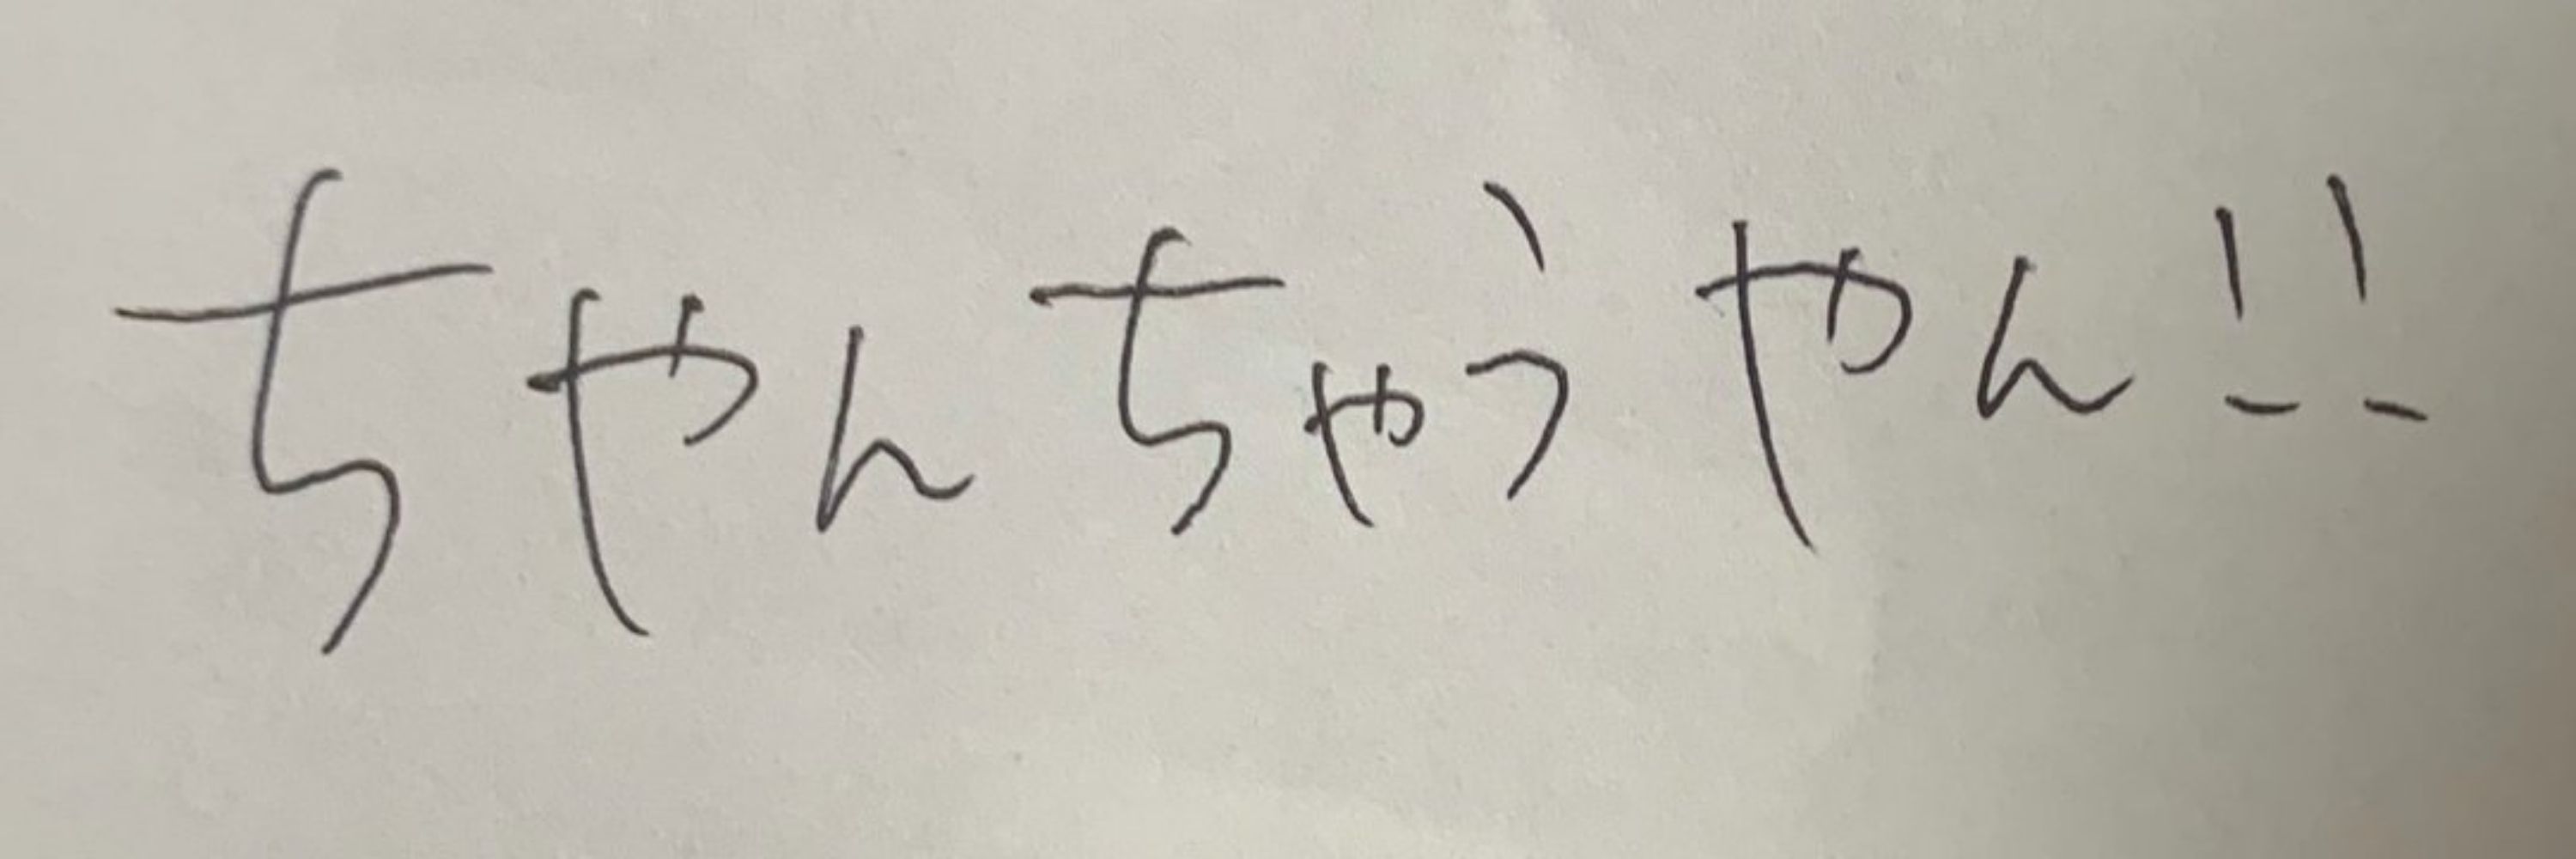 ちゃんちゃうやん!!